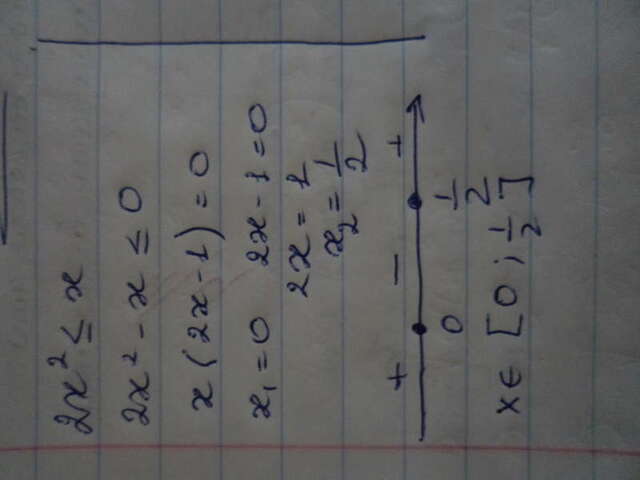 2x² ≤ x
2x² - x ≤ 0
x(2x-1)=0
x₁=0 2x-1=0
2x=1
x₂=1/2
+ - +
0 1/2
x∈[0;1/2]